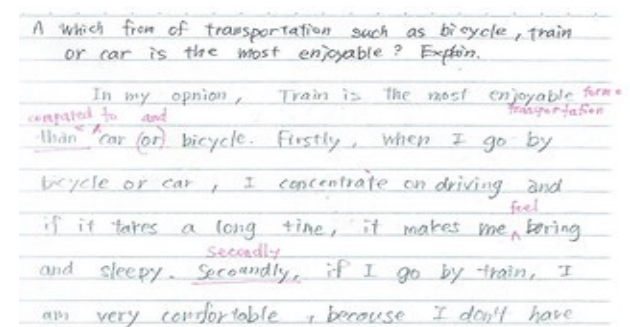 A Which from of transportation such as bicycle, train
or car is the most enjoyable? Explain.
In my opnion, Train is the most enjoyable form of
transportation
compared to and
than car (or) bicycle. Firstly, when I go by
bicycle or car, I concentrate on driving and
feel
if it takes a long time, it makes me boring
Secondly
and sleepy. Secoandly, if I go by train, I
am very comfortable, because I don't have